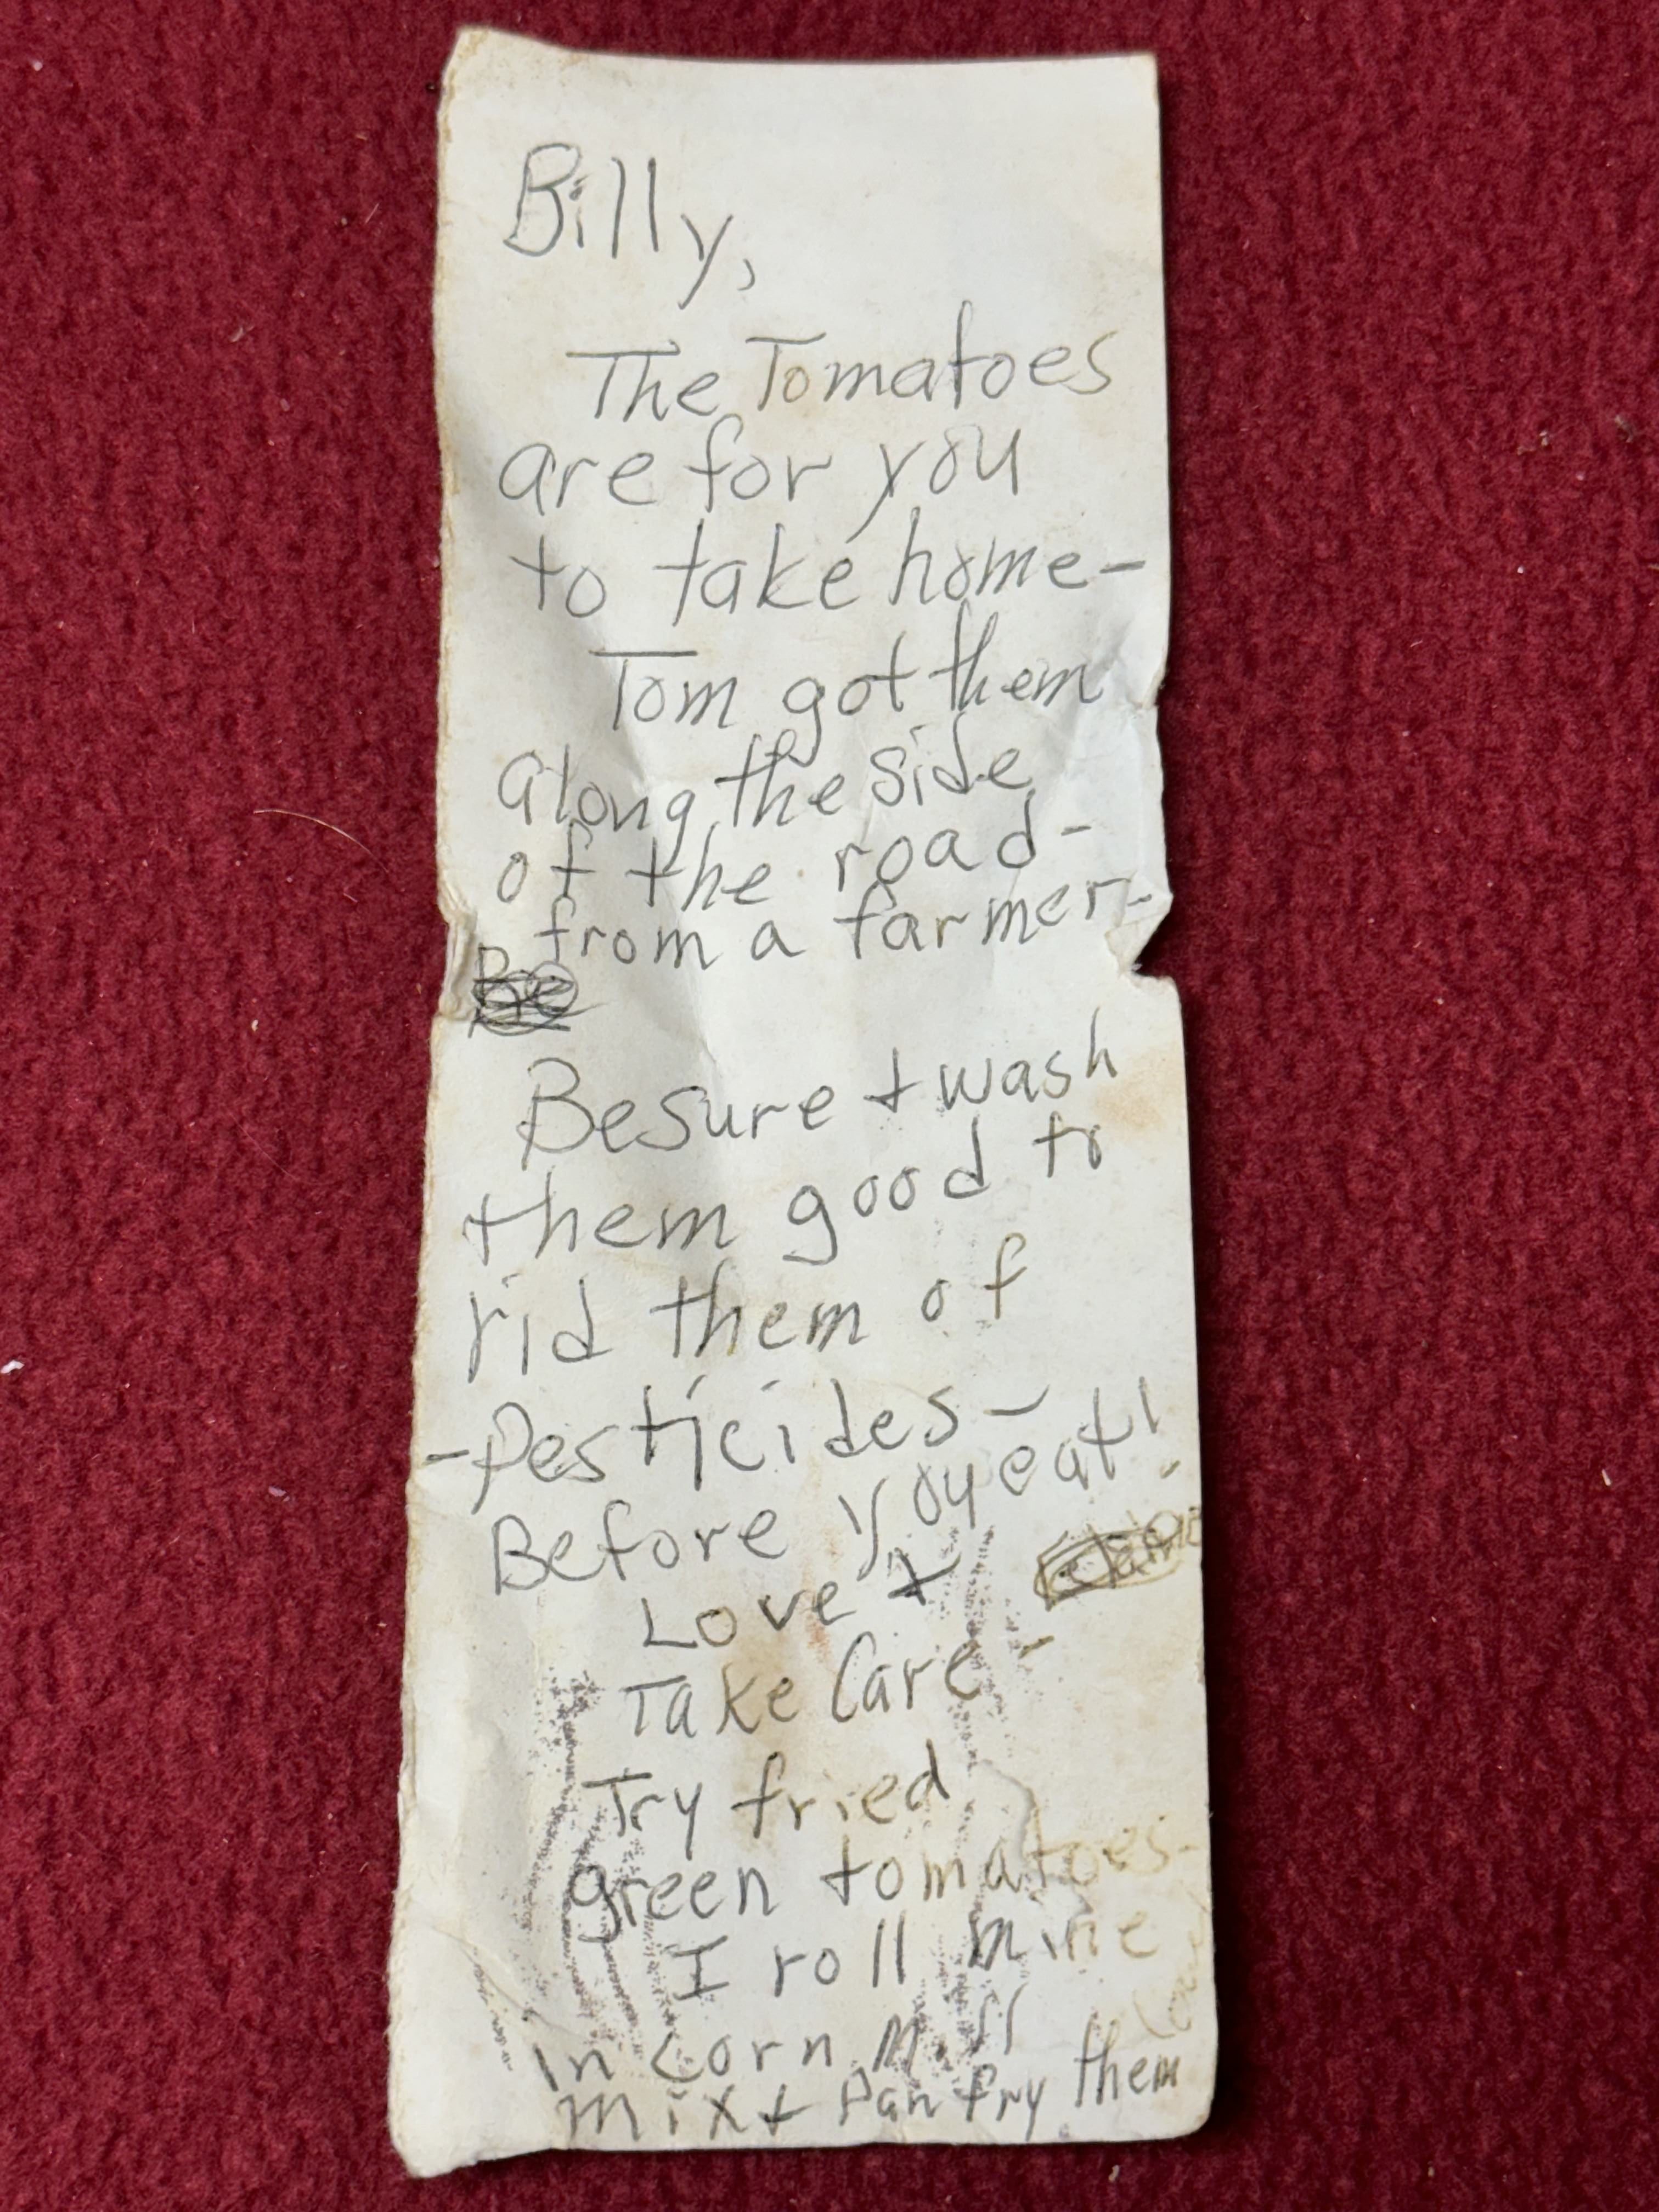 Billy,
The Tomatoes
are for you
to take home-
Tom got them
along the side
of the road-
from a farmer-
Be
Besure + wash
them good to
rid them of
-Pesticides-
Before you eat!
Love +
Take Care-
Try fried
green tomatoes-
I roll mine
in corn
mix + Pan fry them